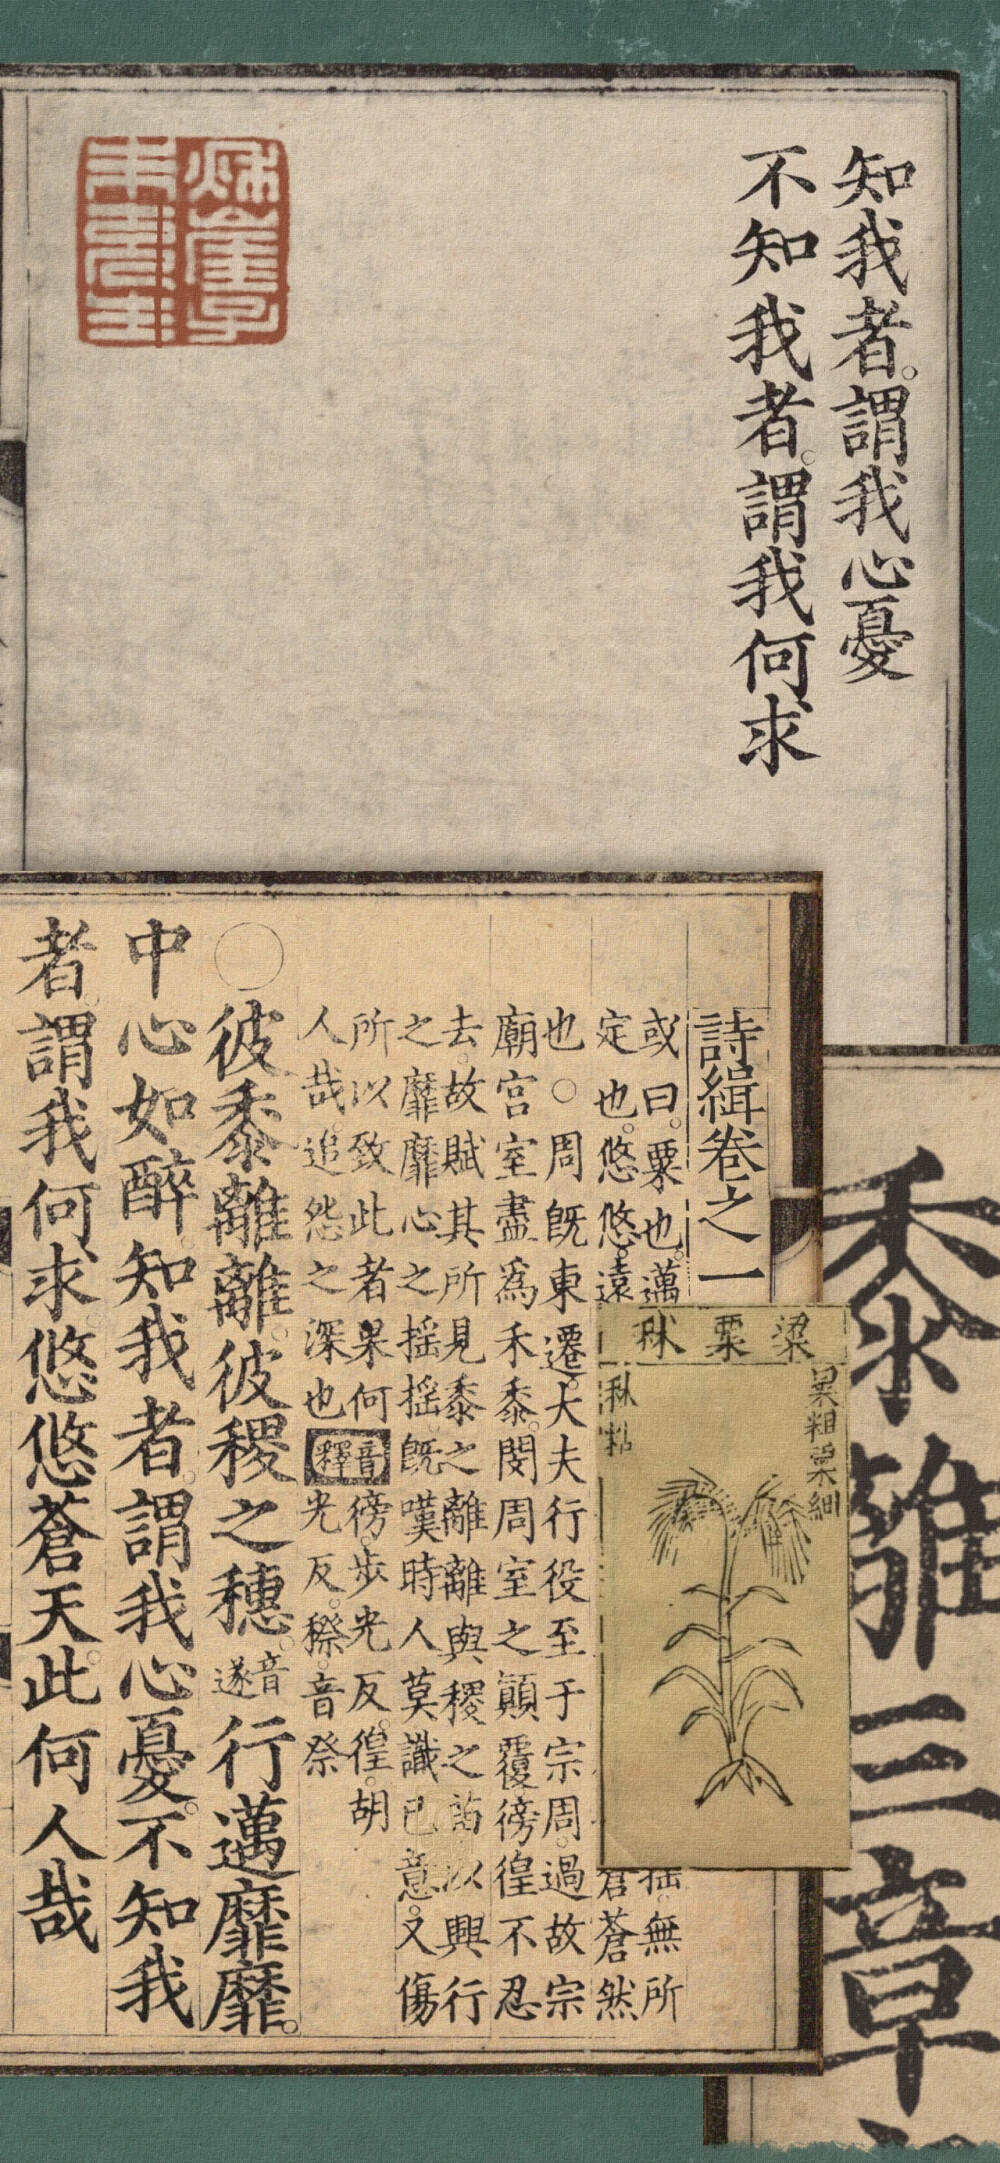 知我者。謂我心憂
不知我者。謂我何求
詩緝卷之一
或曰。粟也。邁
搖。無所
定也。悠悠。遠
蒼蒼然
也○周既東遷。大夫行役至于宗周。過故宗
廟宮室盡爲禾黍。閔周室之顛覆傍徨不忍
去。故賦其所見黍之離離與稷之苗以興行
之靡靡心之搖搖。既嘆時人莫識己意。又傷
所以致此者果何
人哉。追怨之深也
釋音
傍。步光反。徨。胡
光反。穄音祭
○彼黍離離。彼稷之穗。音遂行邁靡靡。
中心如醉。知我者。謂我心憂。不知我
者。謂我何求悠悠蒼天。此何人哉
粱粟秫
秫粘
黍離三章